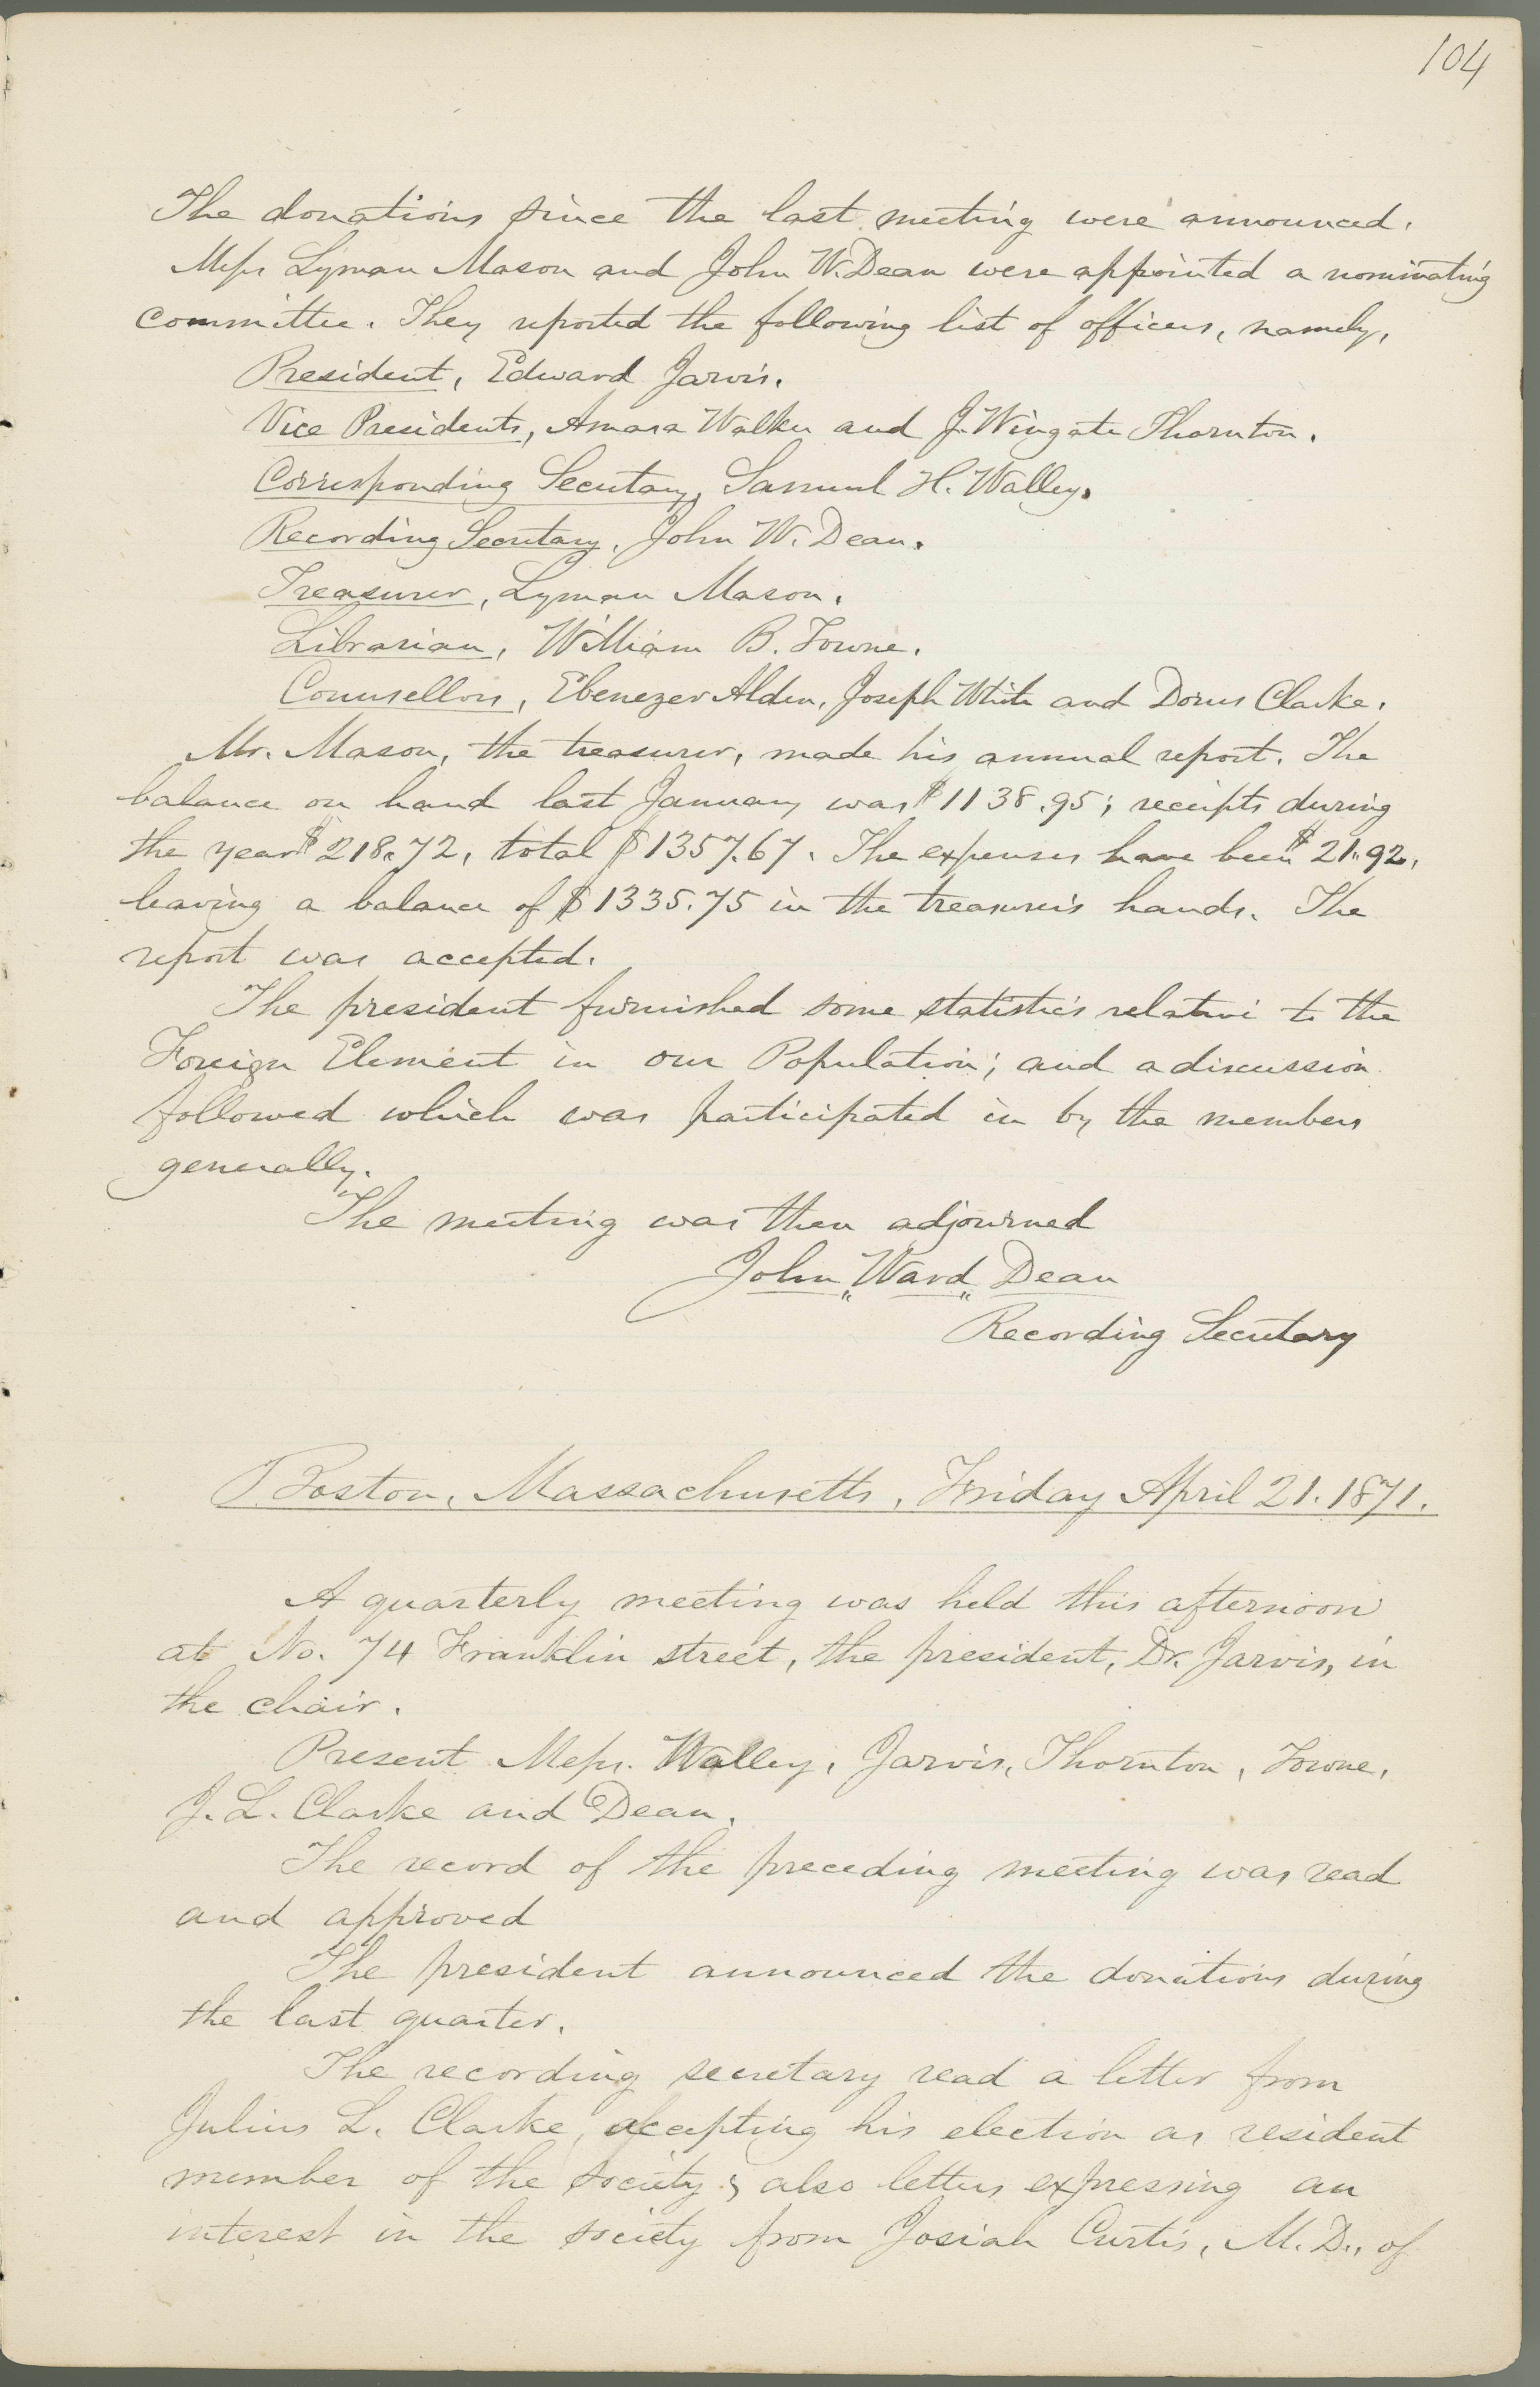 104
The donations since the last meeting were announced.
Messrs Lyman Mason and John W. Dean were appointed a nominating
committee. They reported the following list of officers, namely,
President, Edward Jarvis.
Vice Presidents, Amasa Walker and J. Wingate Thornton.
Corresponding Secretary, Samuel H. Walley.
Recording Secretary, John W. Dean.
Treasurer, Lyman Mason.
Librarian, William B. Towne.
Counsellors, Ebenezer Alden, Joseph White and Dorus Clarke.
Mr. Mason, the treasurer, made his annual report. The
balance on hand last January was $1138.95; receipts during
the year $218.72, total $1357.67. The expenses have been $21.92,
leaving a balance of $1335.75 in the treasurer's hands. The
report was accepted.
The president furnished some statistics relative to the
Foreign Element in our Population; and a discussion
followed which was participated in by the members
generally.
The meeting was then adjourned
John Ward Dean
Recording Secretary
Boston, Massachusetts, Friday April 21. 1871.
A quarterly meeting was held this afternoon
at No. 74 Franklin street, the president, Dr. Jarvis, in
the chair.
Present Messrs. Walley, Jarvis, Thornton, Towne,
J. L. Clarke and Dean.
The record of the preceding meeting was read
and approved
The president announced the donations during
the last quarter.
The recording secretary read a letter from
Julius L. Clarke, accepting his election as resident
member of the society; also letters expressing an
interest in the society from Josiah Curtis, M. D., of